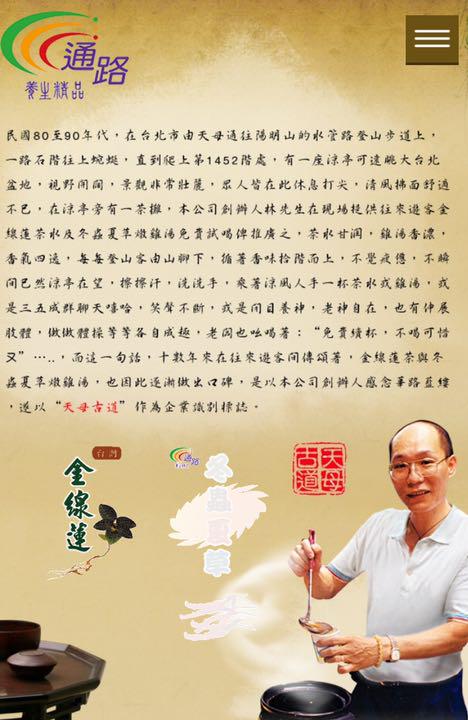 通路
養生精品
民國80至90年代，在台北市由天母通往陽明山的水管路登山步道上，
一路石階往上蜿蜒，直到爬上第1452階處，有一座涼亭可遠眺大台北
盆地，視野開闊，景觀非常壯麗，眾人皆在此休息打尖，清風拂面舒適
不已，在涼亭旁有一茶攤，本公司創辦人林先生在現場提供往來遊客金
線蓮茶水及冬蟲夏草燉雞湯免費試喝俾推廣之，茶水甘潤，雞湯香濃，
香氣四逸，每每登山客由山腳下，循著香味拾階而上，不覺疲憊，不瞬
間已然涼亭在望，擦擦汗，洗洗手，乘著涼風人手一杯茶水或雞湯，或
是三五成群聊天嘻哈，笑聲不斷，或是閉目養神，老神自在，也有伸展
肢體，做做體操等等各自成趣，老闆也吆喝著：“免費續杯，不喝可惜
又”‧‧‧..，而這一句話，十數年來在往來遊客間傳頌著，金線蓮茶與冬
蟲夏草燉雞湯，也因此逐漸做出口碑，是以本公司創辦人感念篳路藍縷
，遂以“天母古道”作為企業識別標誌。
台灣
金線蓮
通路
冬蟲夏草
天母古道